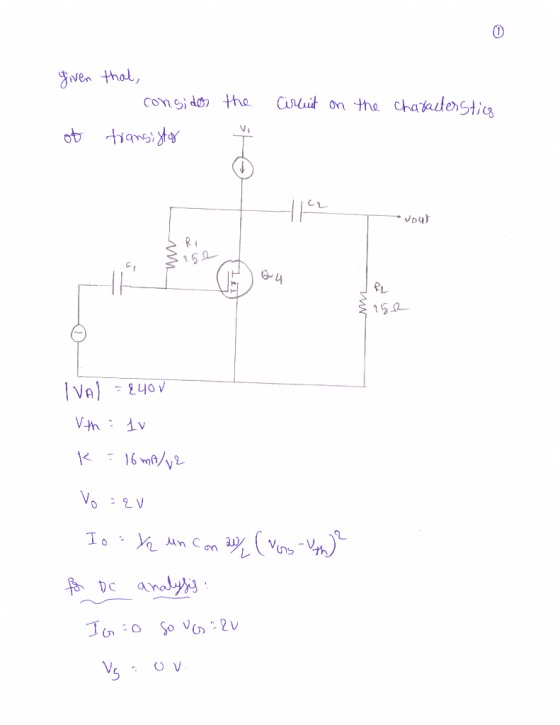 ①
given that,
consider the Circuit on the characteristics
of transistor
V1
C2
Vout
R1
25Ω
C1
Q4
RL
25Ω
|VA| = 240V
Vth = 1V
K = 16 mA/V2
VO = 2V
ID = 1/2 un Con W/L (VGS - Vth)2
for DC analysis:
IG = 0 so VG = 2V
VS = 0 V